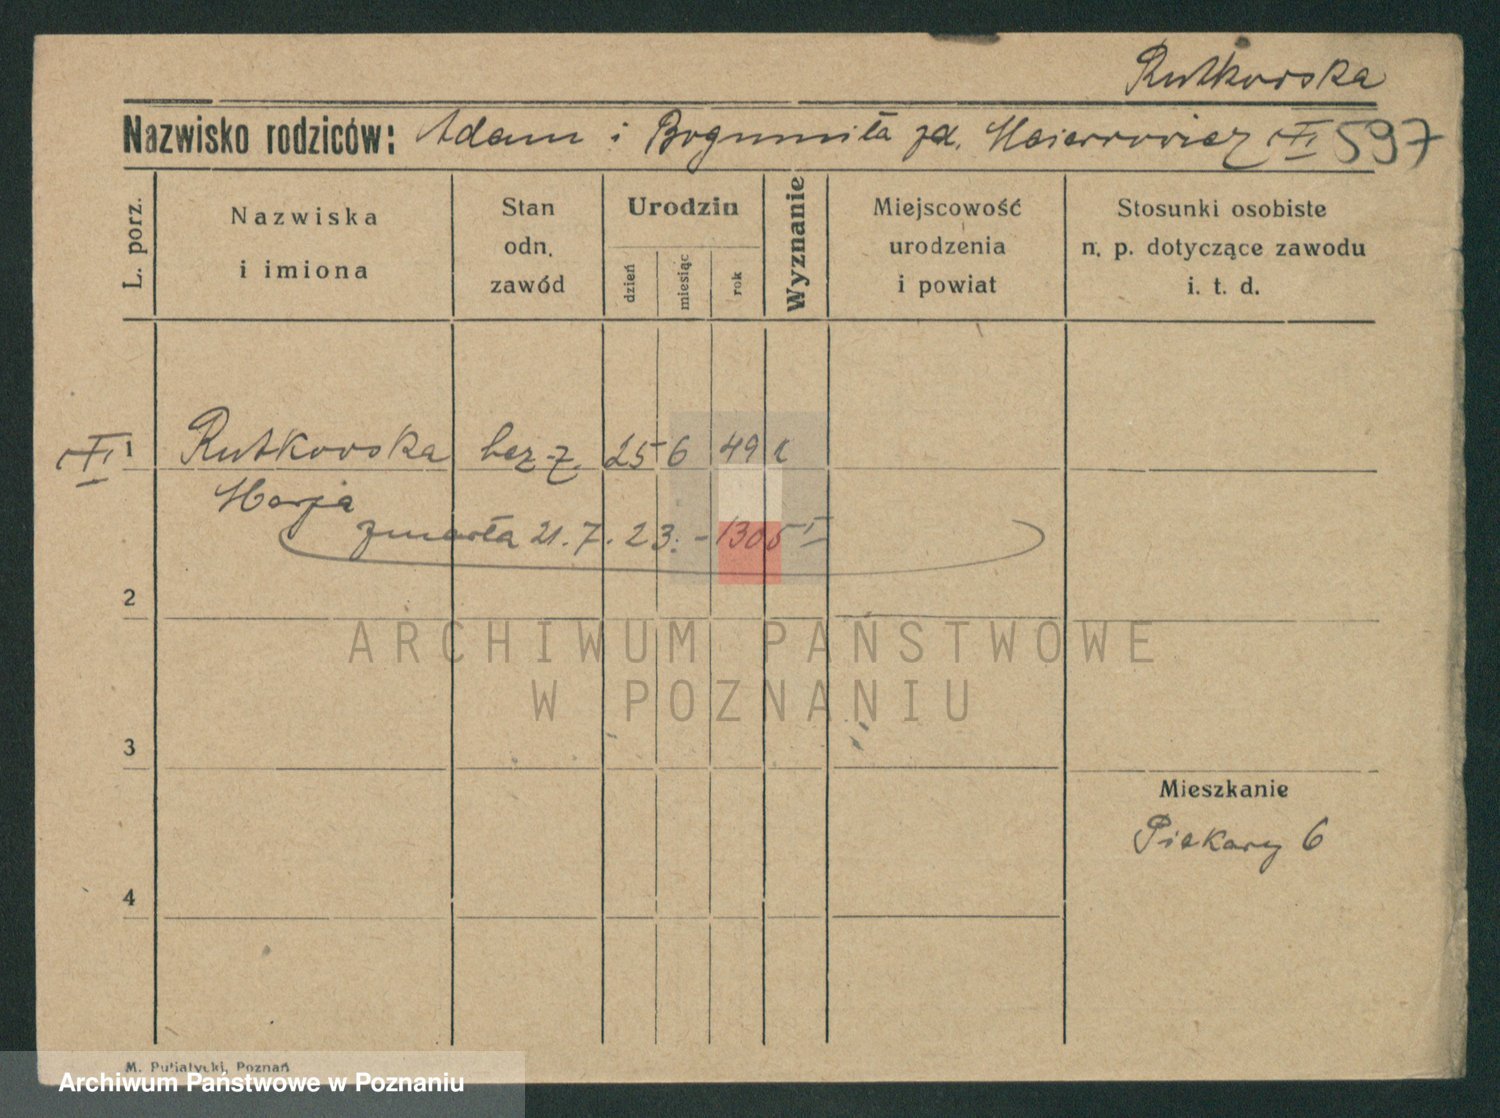 Rutkowska
Nazwisko rodziców: Adam i Bogumiła zd. 597
L. porz.
Nazwiska
i imiona
Stan
odn.
zawód
Urodzin
dzień
miesiąc
rok
Wyznanie
Miejscowość
urodzenia
i powiat
Stosunki osobiste
n. p. dotyczące zawodu
i. t. d.
1 Rutkowska bez z. 25 6 49
Marja
zmarła 21. 7. 23. - 1305 I
2
ARCHIWUM PAŃSTWOWE
W POZNANIU
3
Mieszkanie
Piekary 6
4
M. Putiatycki, Poznań
Archiwum Państwowe w Poznaniu